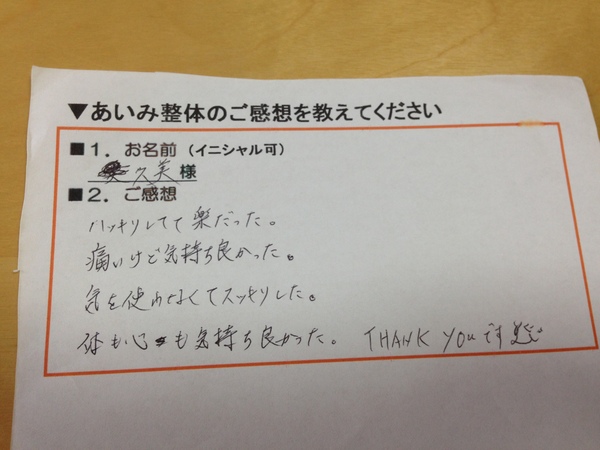 ▼あいみ整体のご感想を教えてください
■1．お名前（イニシャル可）
久美様
■2．ご感想
ハッキリしてて楽だった。
痛いけど気持ち良かった。
気を使わなくてスッキリした。
体も心も気持ち良かった。 THANK YOUです